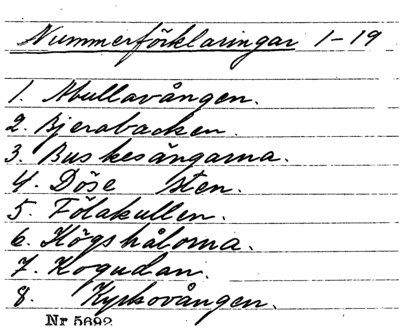 Nummerförklaringar 1-19
1. Abullavången.
2. Bjerabacken.
3. Buskesängarna.
4. Döse sten.
5. Fölakullen.
6. Högshålorna.
7. Kogudan.
8. Kyrkovången.
Nr 5692